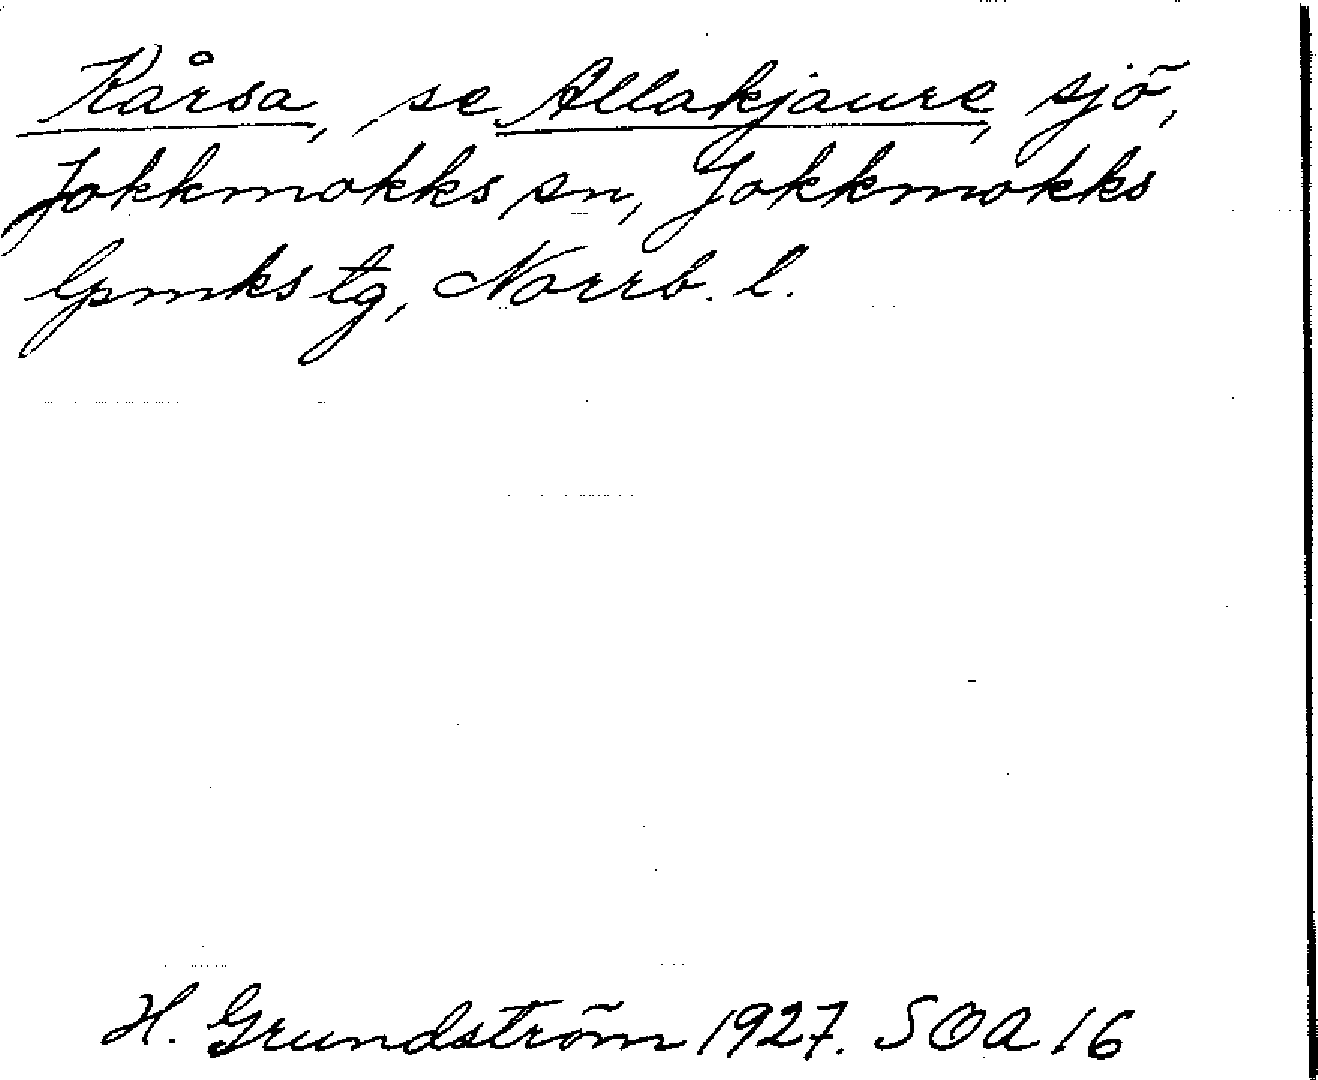 Kårsa, se Allakjaure, sjö,
Jokkmokks sn, Jokkmokks
lpmks tg, Norrb. l.
H. Grundström 1927. SOA 16